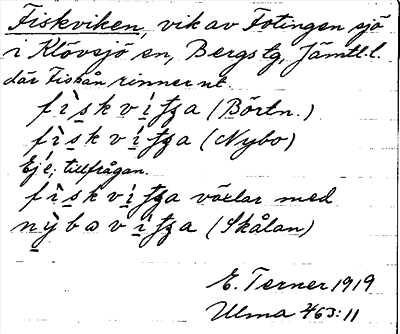 Fiskviken, vik av Fotingen sjö
i Klövsjö sn, Bergs tg, Jämtl. l.
där Fiskån rinner ut.
fìskvitʒa (Börtn.)
fìskvitʒa (Nybo)
Ej e, tillfrågan.
fìskvitʒa växlar med
nỳbovitʒa (Skålan)
E. Terner 1919
Ulma 2/63:11